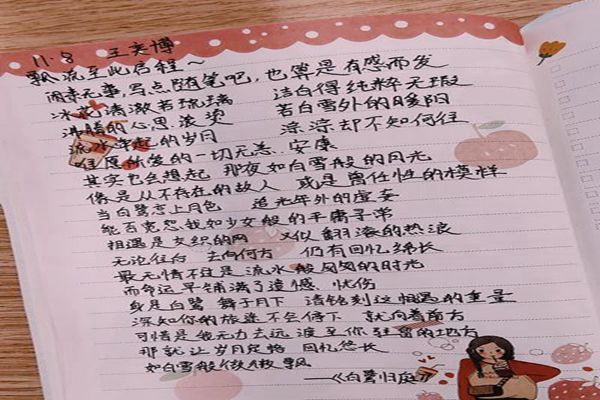 11.8 王奕博
飘流至此启程~
闲来无事,写点随笔吧,也算是有感而发
冰花清澈若琉璃 洁白得纯粹无瑕
沸腾的心思滚烫 若白雪外的暖阳
流水 起的岁月 涂涂却不知何往
往愿你爱的一切无恙、安康
其实也会想起 那夜如白雪般的月光
像是从不存在的故人 或是曾任性的模样
当白鹭恋上月色 追光年外的虚妄
能否宽恕我如少女般的平庸子弟
相遇是交织的网 又似翻涌的热浪
无论往台 去向何方 仍有回忆绵长
最无情不过是流水般匆匆的时光
而命运早铺满了遗憾、忧伤
身是白鹭 舞于月下 请铭刻这相遇的重量
深知你的旅途不会停下 就向着南方
可惜是我无力去远渡至你驻留的地方
那就让岁月定格 回忆悠长
如白雪般做 飘
——《白鹭归庭》